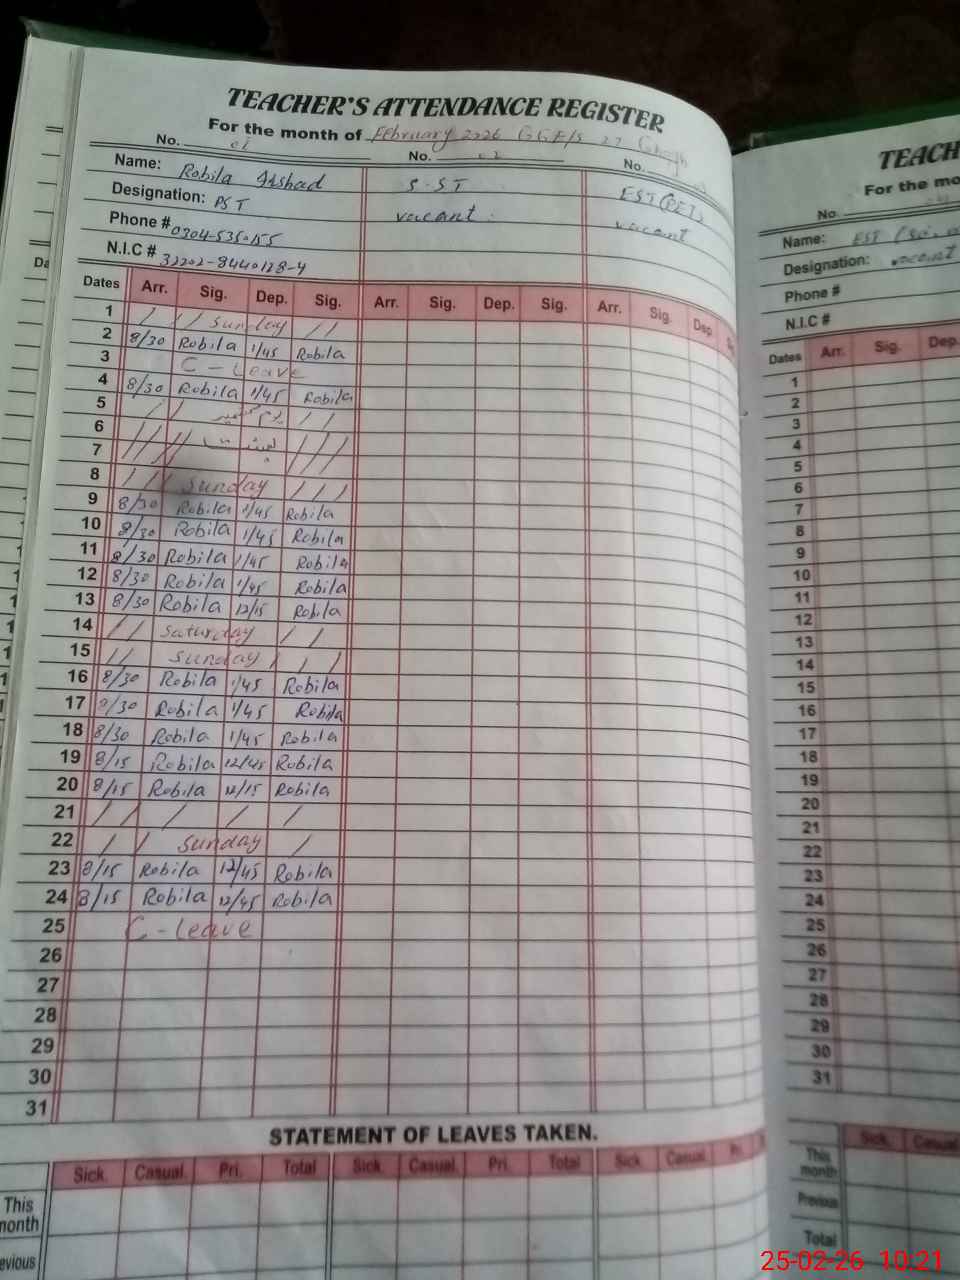 TEACHER'S ATTENDANCE REGISTER
For the month of February 2026 GGE/S 27
No. 01 No. 02 No.
Name: Robila Irshad S.ST EST(PET)
Designation: PST vacant vacant
Phone #
N.I.C #
Dates Arr. Sig. Dep. Sig. Arr. Sig. Dep. Sig. Arr. Sig. Dep.
1 / / / Sunday / /
2 8/30 Robila 1/45 Robila
3 C-Leave
4 8/30 Robila 1/45 Robila
5 / / یوم کشمیر / /
6 / / / / بسنت / / /
7
8 / / / Sunday / / /
9 8/30 Robila 1/45 Robila
10 8/30 Robila 1/45 Robila
11 8/30 Robila 1/45 Robila
12 8/30 Robila 1/45 Robila
13 8/30 Robila 12/15 Robila
14 / / Saturday / /
15 / / Sunday / / /
16 8/30 Robila 1/45 Robila
17 8/30 Robila 1/45 Robila
18 8/30 Robila 1/45 Robila
19 8/15 Robila 12/45 Robila
20 8/15 Robila 12/15 Robila
21 / / / / /
22 / / Sunday /
23 8/15 Robila 12/45 Robila
24 8/15 Robila 12/45 Robila
25 C-leave
26
27
28
29
30
31
STATEMENT OF LEAVES TAKEN.
Sick. Casual. Pri. Total Sick Casual. Pri. Total Sick Casual. Pri.
This
month
evious
TEACH
For the mo
No
Name: EST
Designation: vacant
Phone #
N.I.C #
Dates Arr. Sig. Dep.
1
2
3
4
5
6
7
8
9
10
11
12
13
14
15
16
17
18
19
20
21
22
23
24
25
26
27
28
29
30
31
Sick. Casual
This
month
Previous
Total
25-02-26 10:21